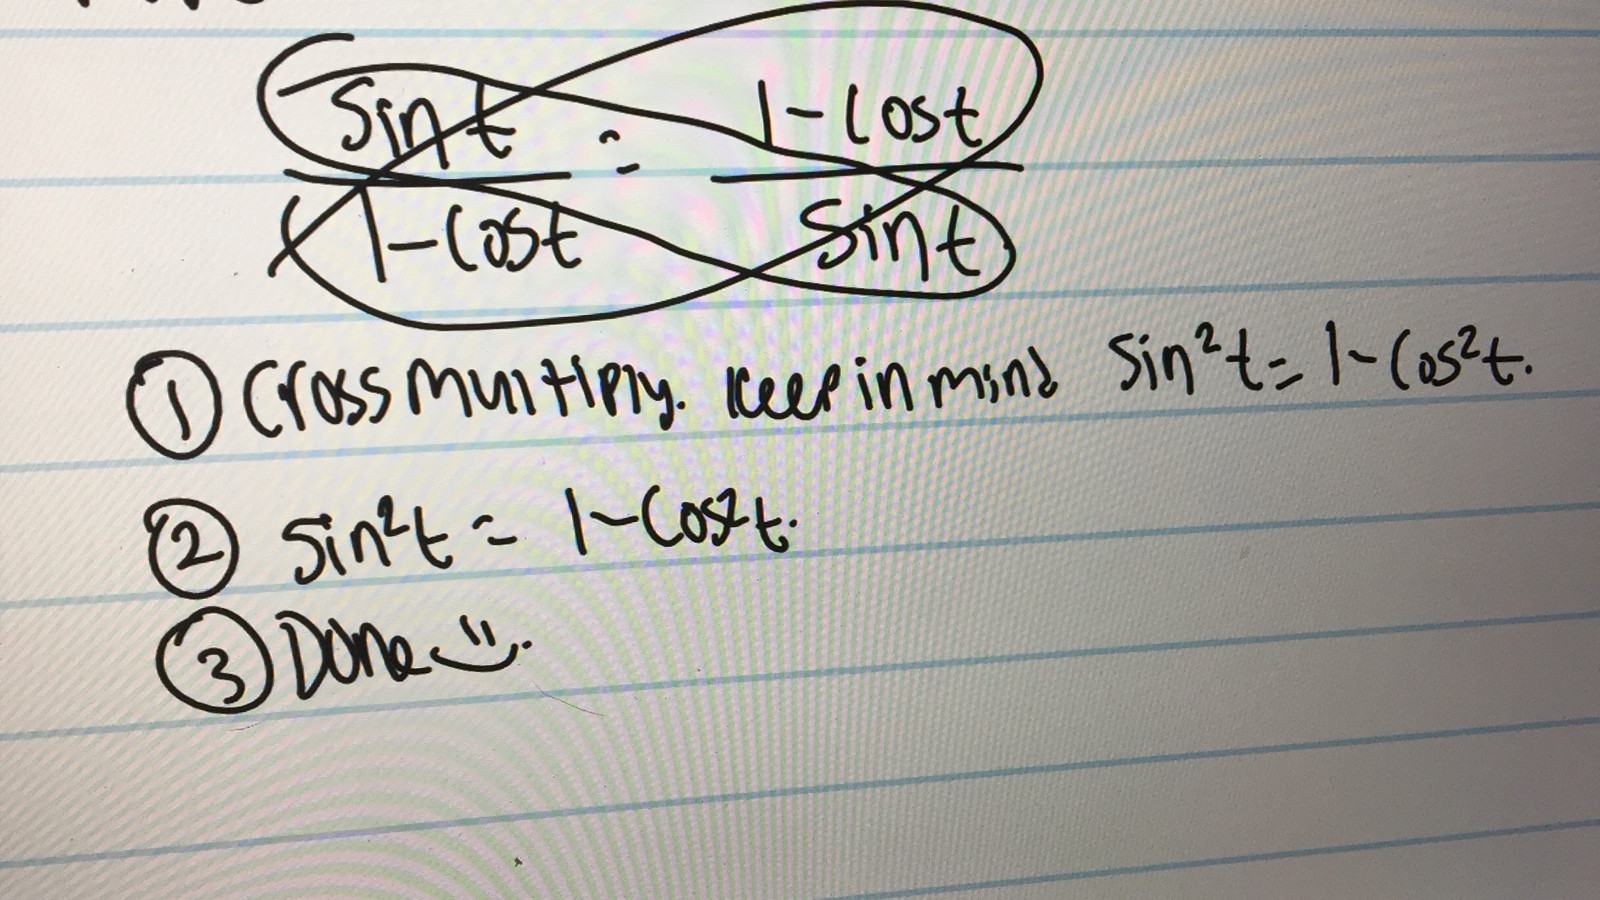 sint = 1-Cost
1-Cost sint
① Cross multiply. Keep in mind sin²t = 1-Cos²t.
② sin²t = 1-Cos²t.
③ Done